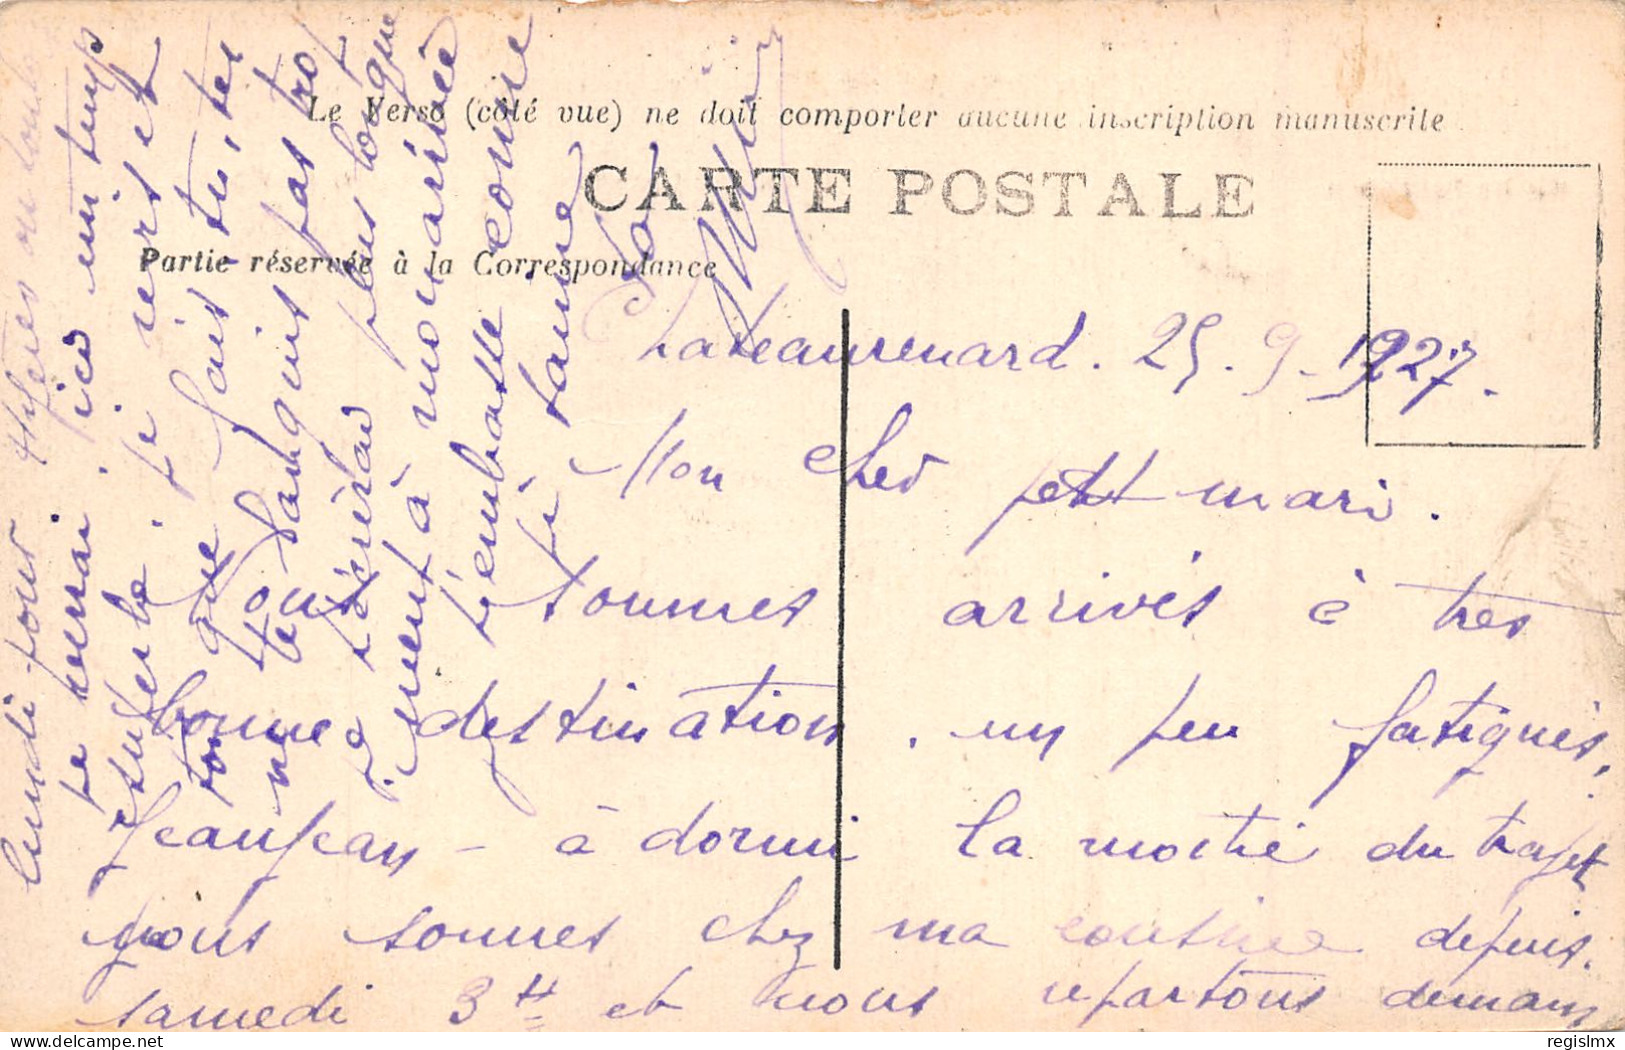 Le Verso (côté vue) ne doit comporter aucune inscription manuscrite
CARTE POSTALE
Partie réservée à la Correspondance
Chateaurenard. 25.9.1927.
Mon cher petit mari.
Nous sommes arrivés à tres
bonne destination. un peu fatigués,
JeanJean - à dormi la moitié du trajet
nous sommes chez ma cousine depuis
samedi 3 H et nous repartons demain
lundi pour Hyères ou
te verrai. ici un temps
superbe. je
que fais-tu,
tous
ne te languis pas trop
je t'écrirai plus longue
ment à mon arrivée
t'embrasse comme
t'aime
Ton
regislmx